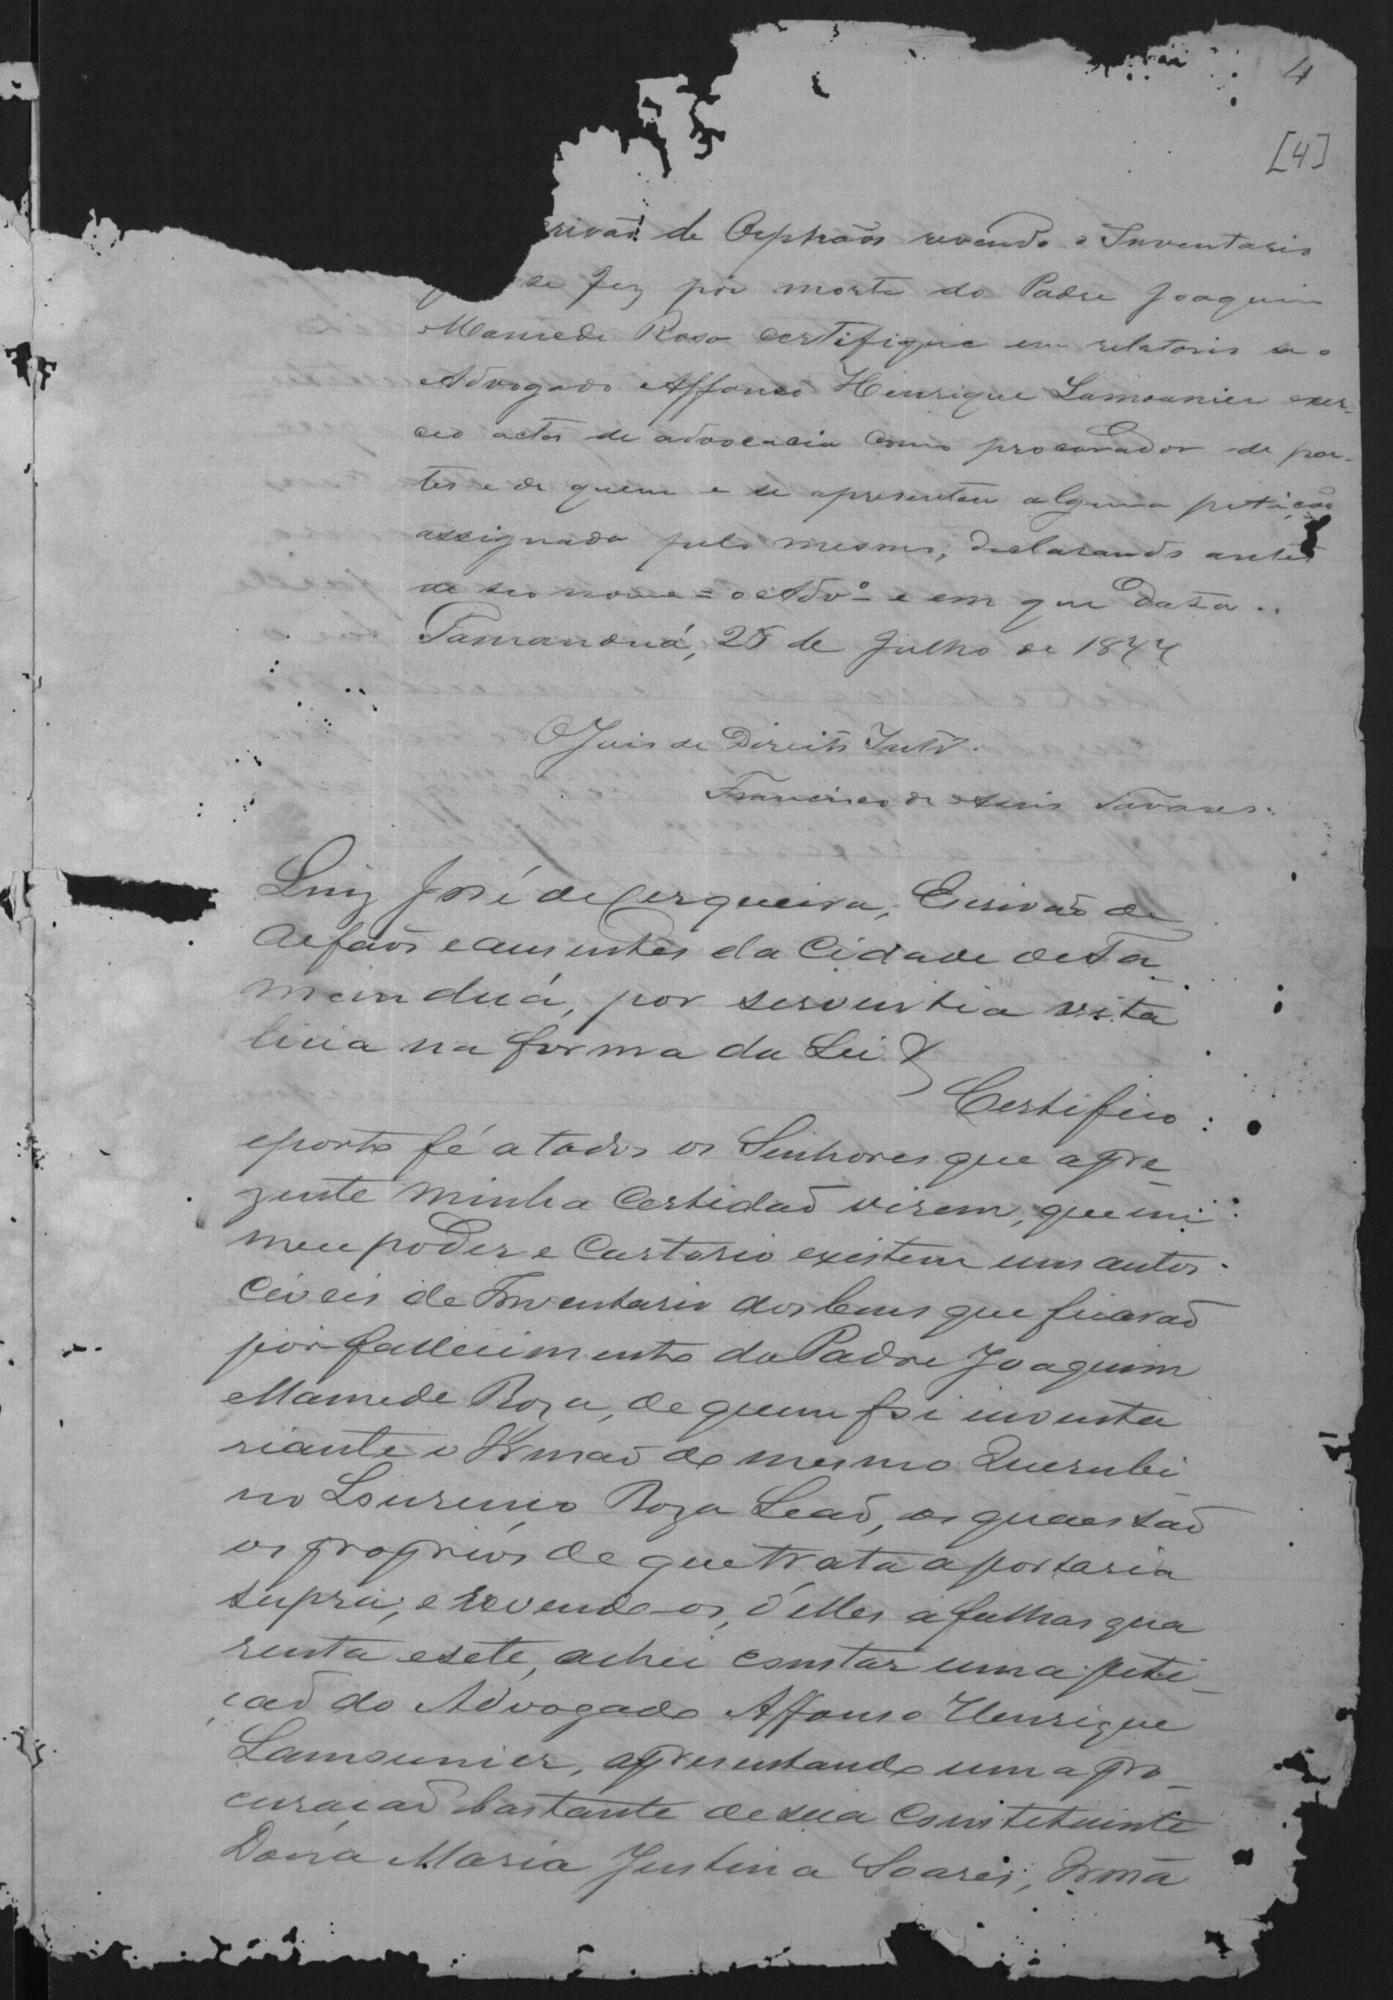 4
[4]
crivaõ de Orphaõs revendo o Inventario
se fez por morte do Padre Joaquim
Mamede Rosa certifique em relatorio se o
Advogado Affonso Henrique Lamounier exer-
ceo actos de advocacia como procurador de par-
tes e de quem e se apresentou alguma petição
assignada pelo mesmo, declarando antes
de seo nome = o Advº = e em que data..
Tamanduá, 28 de Julho de 1877
O Juis de Direito Intº.
Francisco de Assis Tavares.
Luiz José de Cerqueira, Escrivaõ de
Orfaõs e ausentes da Cidade de Ta-
manduá, por serventia vita
licia na forma da Lei &
Certifico
e porto fé a todos os Senhores que a pre-
zente minha Certidaõ virem, que em
meu poder e Cartorio existem uns autos
Civeis de Inventario dos bens que ficaraõ
por fallecimento do Padre Joaquim
Mamede Roza, de quem foi inventa
riante o Irmaõ do mesmo Querubi
no Lourenço Roza Leaõ, os quaes saõ
os proprios de que trata a portaria
supra; e revendo-os, d'elles a folhas qua
renta e sete, achei constar uma peti-
çaõ do Advogado Affonso Henrique
Lamounier, apresentando uma pro-
curaçaõ bastante de sua Constituinte
Dona Maria Justina Soares, Irmã